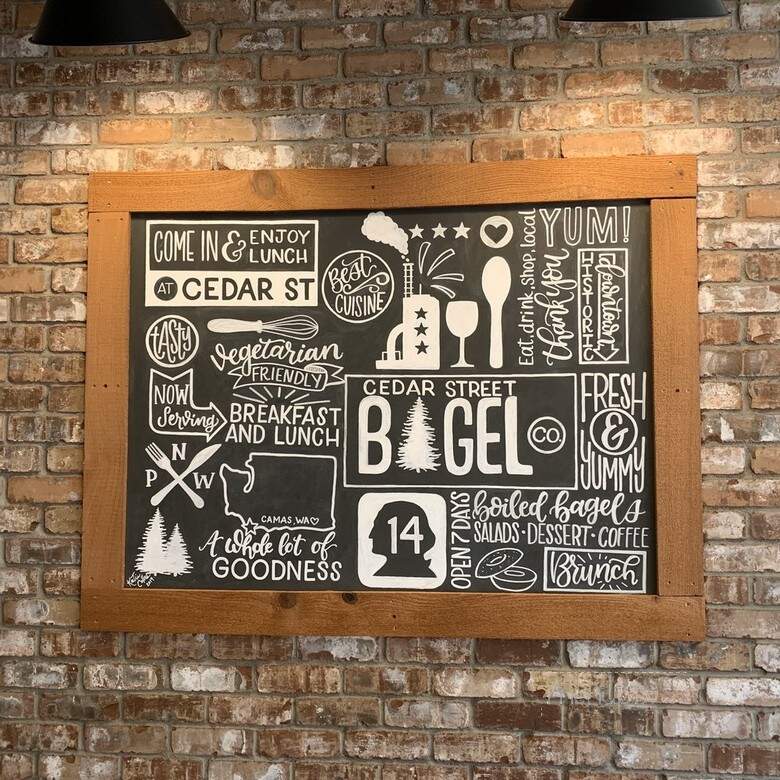 COME IN & ENJOY LUNCH
AT CEDAR ST
Best CUISINE
Eat.drink.shop.local
thank you
YUM!
HISTORIC
downtown
tasty
vegetarian
FRIENDLY
NOW
Serving
BREAKFAST
AND LUNCH
CEDAR STREET
BAGEL CO.
FRESH
&
YUMMY
P N W
CAMAS, WA
A whole lot of
GOODNESS
14
OPEN 7 DAYS
boiled bagels
SALADS · DESSERT · COFFEE
Brunch